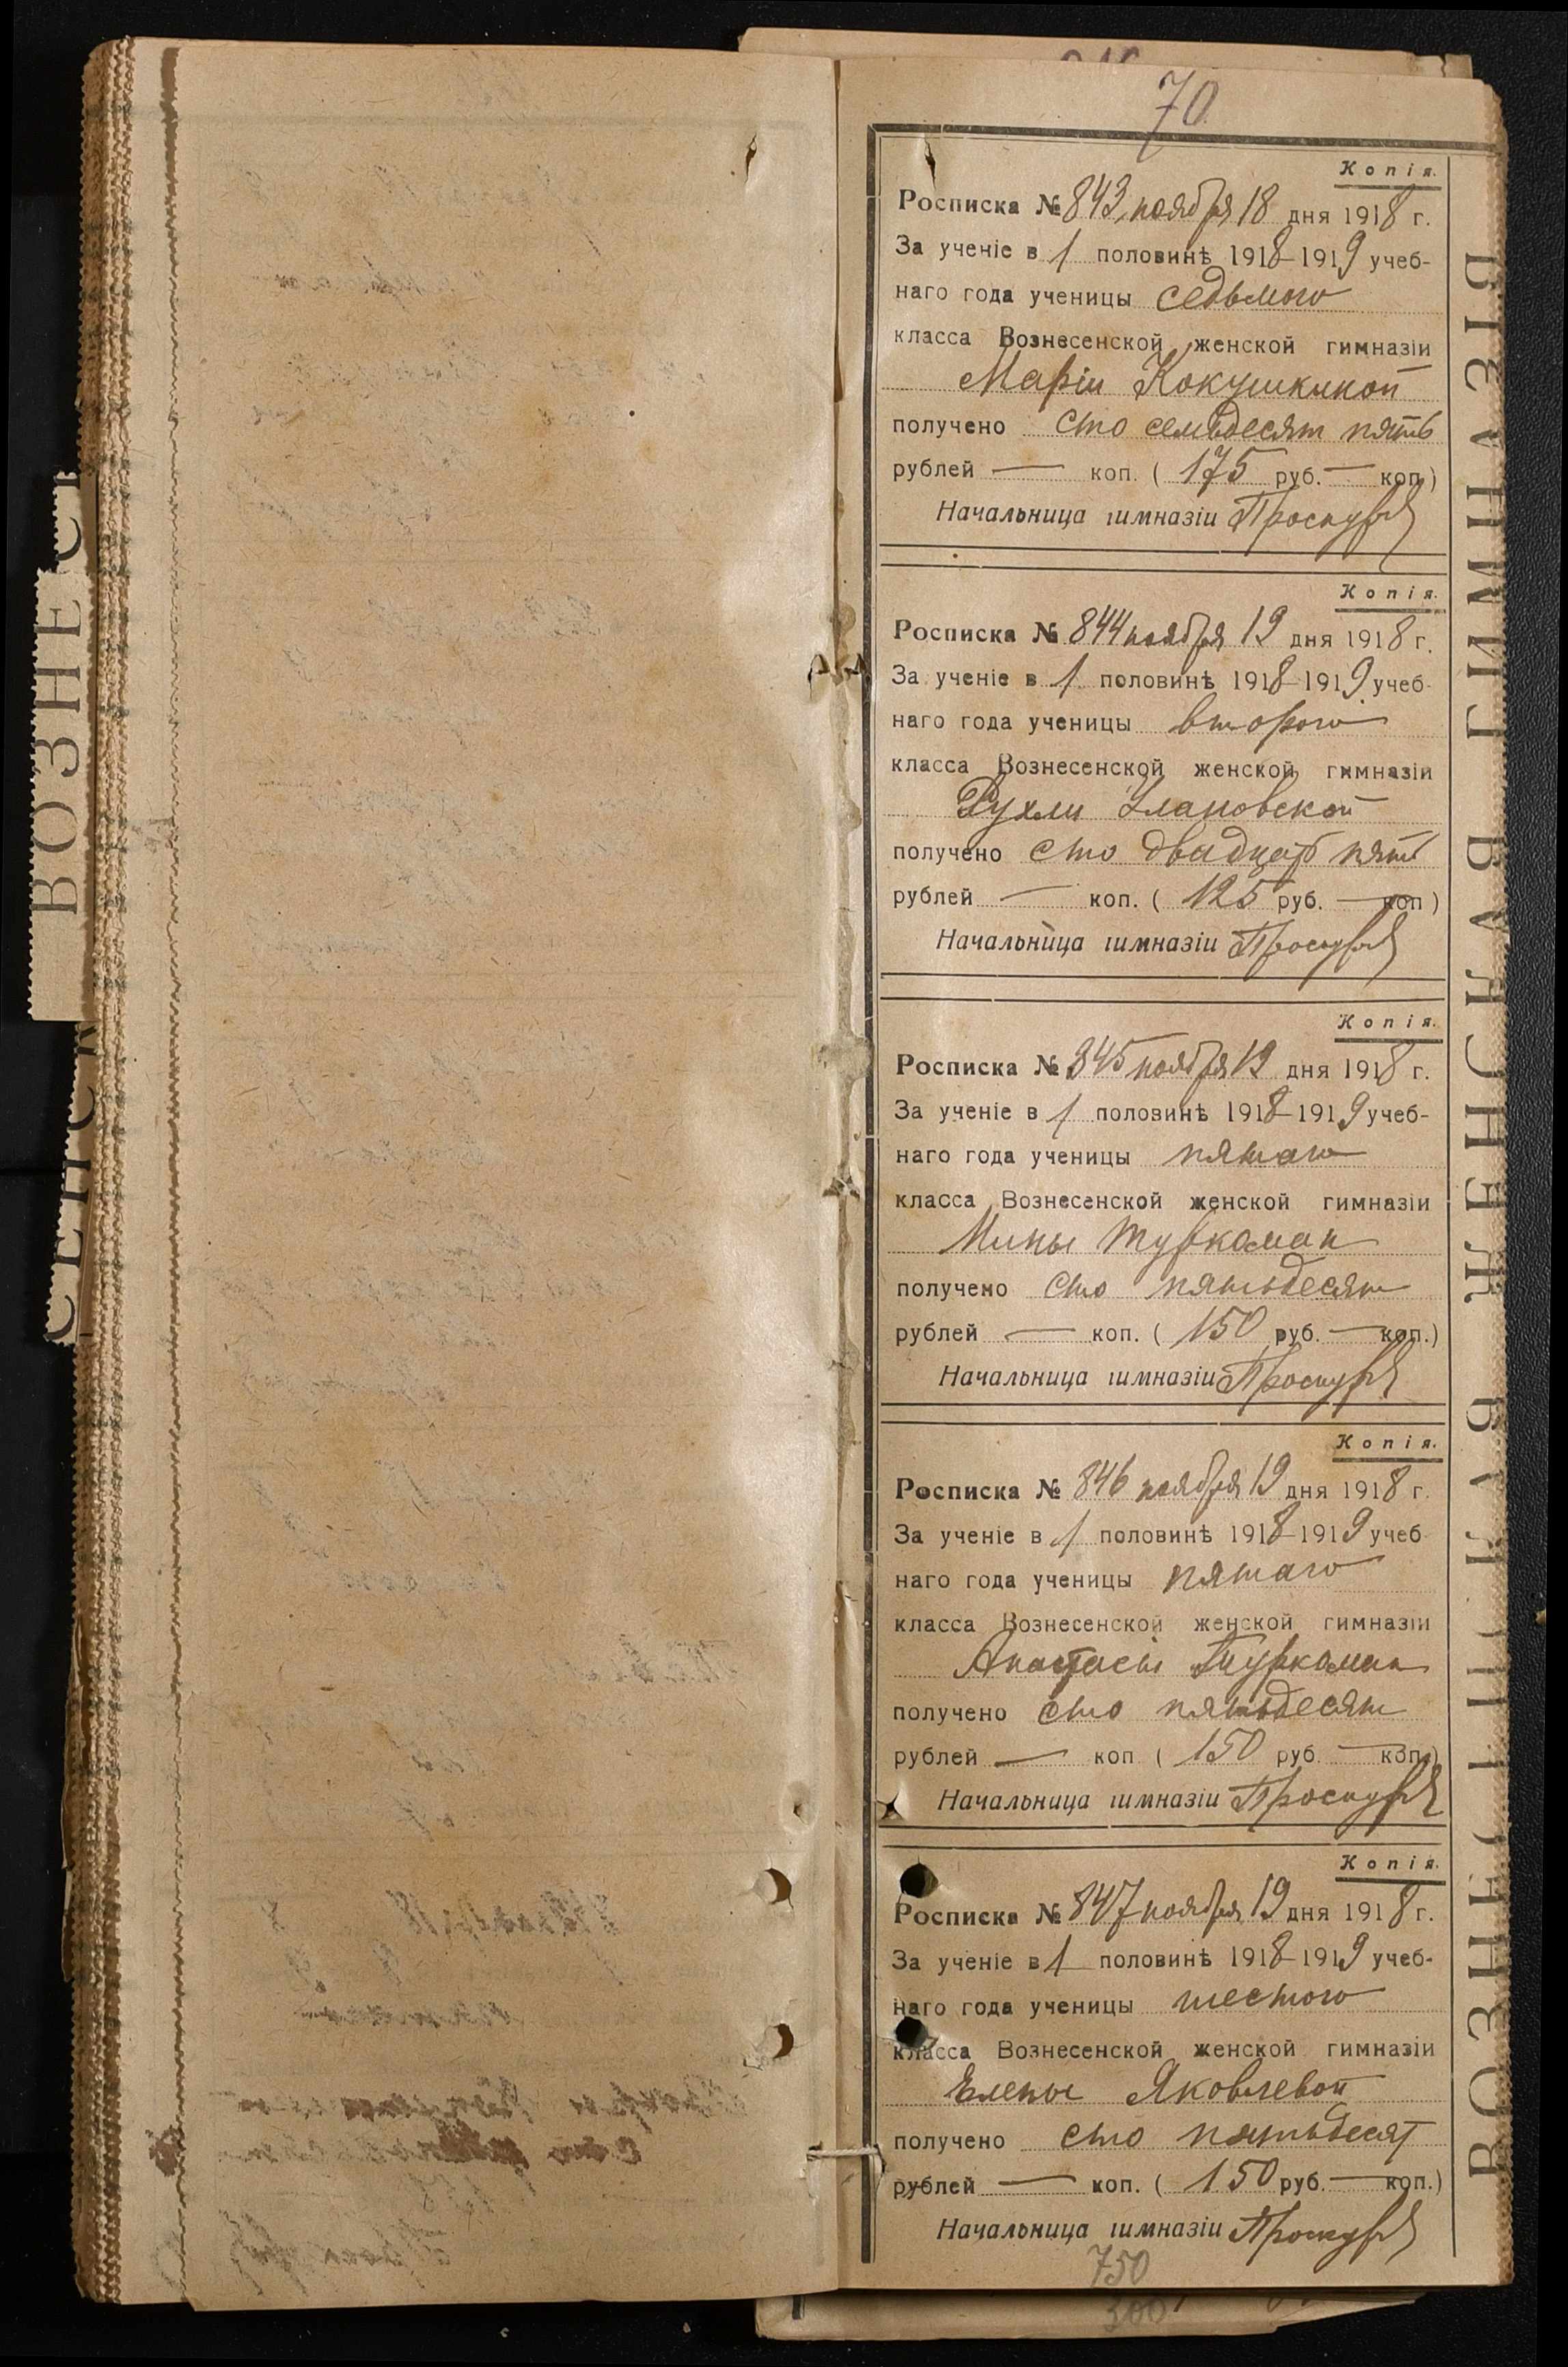 ВОЗНЕС
СЕНСК
70
Копія.
Росписка № 843, ноября 18 дня 1918 г.
За ученіе в 1 половинѣ 1918-1919 учеб-
наго года ученицы седьмого
класса Вознесенской женской гимназіи
Маріи Кокушкиной
получено сто семьдесят пять
рублей — коп. ( 175 руб. — коп)
Начальница гимназіи
Копія.
Росписка № 844 ноября 19 дня 1918 г.
За ученіе в 1 половинѣ 1918-1919 учеб-
наго года ученицы второго
класса Вознесенской женской гимназіи
Рухли Улановской
получено сто двадцать пять
рублей — коп. ( 125 руб. — коп )
Начальница гимназіи
Копія.
Росписка № 845 ноября 19 дня 1918 г.
За ученіе в 1 половинѣ 1918-1919 учеб-
наго года ученицы пятаго
класса Вознесенской женской гимназіи
Нины Туркоман
получено сто пятьдесят
рублей — коп. ( 150 руб. — коп.)
Начальница гимназіи
Копія.
Росписка № 846 ноября 19 дня 1918 г.
За ученіе в 1 половинѣ 1918-1919 учеб
наго года ученицы пятаго
класса Вознесенской женской гимназіи
Анастасіи Туркоман
получено сто пятьдесят
рублей — коп ( 150 руб. — коп.)
Начальница гимназіи
Копія.
Росписка № 847 ноября 19 дня 1918 г.
За ученіе в 1 половинѣ 1918-1919 учеб-
наго года ученицы шестого
класса Вознесенской женской гимназіи
Елены Яковлевой
получено сто пятьдесят
рублей — коп. ( 150 руб. — коп.)
Начальница гимназіи
750
300
ВОЗНЕСЕНСКАЯ ЖЕНСКАЯ ГИМНАЗІЯ